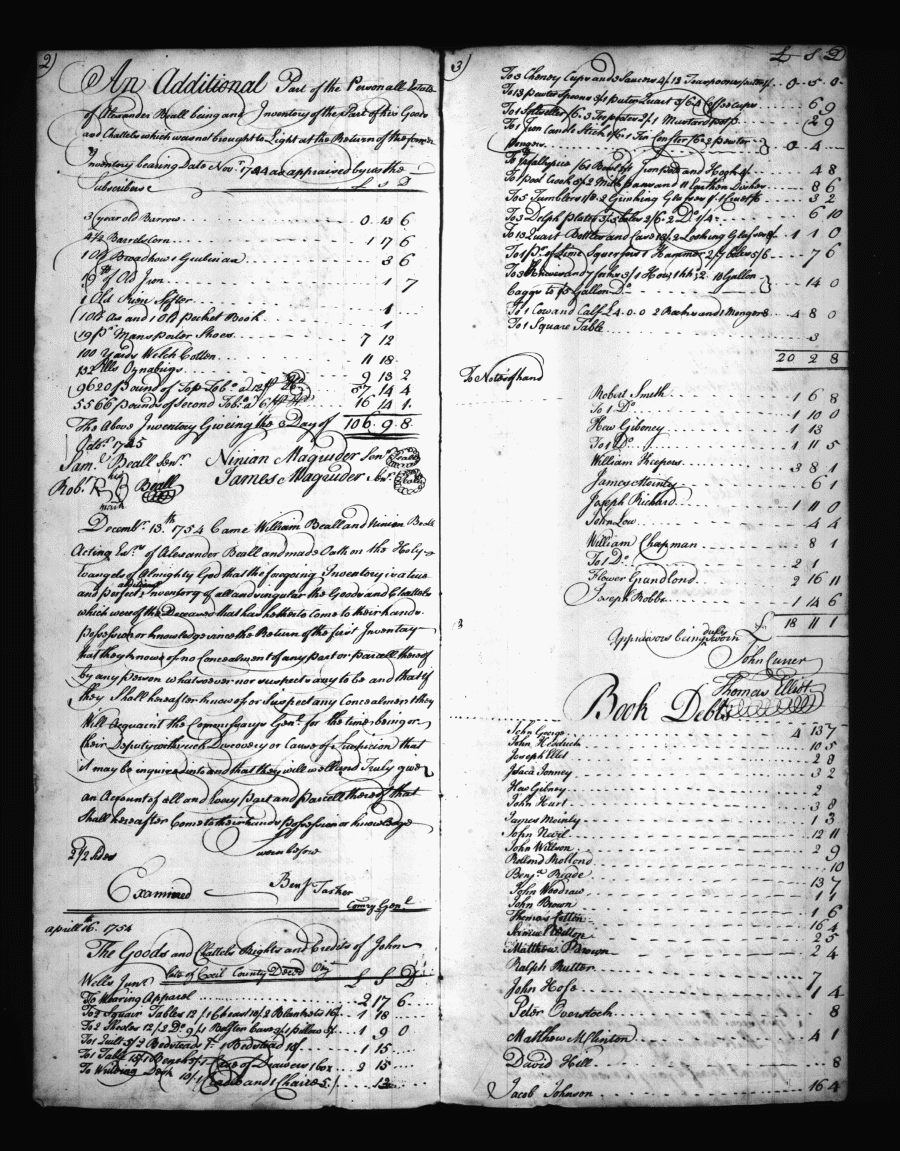 2)
An Additional Part of the Personall Estate
of Alexander Beall being and Inventory of the Part of his Goods
and Chattels which was not brought to Light at the Return of the former
Inventory bearing Date Novr. 1744 as appraised by us the
Subscribers £ S D
3 year old Barrow 0 13 6
4½ Barrels Corn 1 17 6
1 Old Broad how 1 3 6
19 lb of Old Iron 1 7
1 Old Sifter
1 Old and 1 Old Pocket Book 1
19 pr Mans Shoes 7 12
100 Yards Welch Cotton 11 18
132 Ells Oznabrigs 9 13 2
9620 Pound of Top Tobo. a 12/ 57 14 4
5566 Pounds of Second Tobo. a 6/ 16 14 1
The Above Inventory Given the Day of 106 9 8
Octr. 1745
Saml. Beall Senr. Ninian Magruder Senr. Seal
James Magruder Junr. Seal
Robt. R Beall
his
mark
Decembr. 13th. 1754 Came William Beall and Ninian Beall
Acting Exrs. of Alexander Beall and made Oath on the Holy
Evangels of Almighty God that the foregoing Inventory is a true
and perfect additional Inventory of all and singular the Goods and Chattels
which were of the Deceased that has hitherto Come to their hands
Possession or knowledge since the Return of the first Inventory
that they know of no Concealment of any part or parcell thereof
by any person whatsoever nor suspect any to be and that if
they Shall hereafter know of or suspect any Concealment they
Will acquaint the Commissarys Genl. for the time being or
their Deputy with such Discovery or Cause of Suspicion that
it may be inquired into and that they will well and Truly give
an Account of all and Every Part and Parcell thereof that
Shall hereafter Come to their hands Possession or knowledge
2½ Sides sworn before
Examined Benj Tasker
Comry Genl.
april 16th. 1754
The Goods and Chattels Rights and Credits of John
Wells Junr. late of Cecil County Decd. £ S D
To Wearing Apparel 2 17 6
To 2 Squair Tables 12/ 1 Chest 10/ 2 Blankets 16/ 1 18
To 2 12/ 2 Do. 9/ 1 Bolster 1 pillow 1 9 0
To 1 Quilt 5/ 2 Bedsteads 7/ 1 Bedstead 1 15
To 1 Table 15/ 1 Bench Case of Drawers 2 15
To Writing Desk 10/ 1 Cradle and 1 Chaire 5/ 12
3) £ S D
To 3 Cheney Cups and 3 Saucers 4/ 13 Teaspoons 0 5 0
To 13 pewter Spoons 3/ 1 pewter Quart 3/6 4 Coffee cups 6 9
To 1 6/ 3 2/ 1 Mustard pott 2 9
To 1 Iron Candle Stick 1 Tin 2 pewter
0 4
To 1 Iron pott and Hooks 4 8
2 Milk pans and 11 Earthen Dishes 8 6
To 5 Tumblers 1/8 2 Drinking Glasses 3 2
To 3 Delph plates 3/ 5 plates 2/6 2 Do. 1/4 6 10
To 13 Quart Bottles and Case 13/ 2 Looking Glasses 1 1 0
1 Hammer 2/ 7 6
To 3 Knives and 7 forks 3/ 1 How 2 10 Gallon
Caggs 10 5 Gallon Do. 14 0
To 1 Cow and Calf £4 0 0 2 4 8 0
To 1 Square Table 3
20 2 8
To Notes of hand
Robert Smith 1 6 8
To 1 Do. 1 10 0
Hew Gibeney 1 13
To 1 Do. 1 11 5
William Keepers 3 8 1
James Meinly 6 1
Joseph Richard 1 11 0
John Low 4 4
William Chapman 8 1
To 1 Do. 2 1
Flower Grundlond 2 16 11
Joseph Robbs 1 14 6
18 11 1
Appraisors being duly Sworn
John Currer
Thomas Elliot
Book Debts
John George 4 13 7
John Hedrick 10 5
Joseph Eliot 2 8
Jsaca Janney 3 2
Hew Gibney 2
John Hart 3 8
James Meinly 1 3
John Nevil 12 11
John Willson 2 9
Rollond Mollond 10
Benja. Reade 13 7
John Woodraw 1 1
John Brown 1 6
Thomas Cotton 16 4
Samuel 2 5
Matthew Brown 2 4
Ralph Rutter 7
John Hofs 1 4
Peter Overstock 8
Matthew McClinton 4 1
David Hill 8
Jacob Johnson 16 4